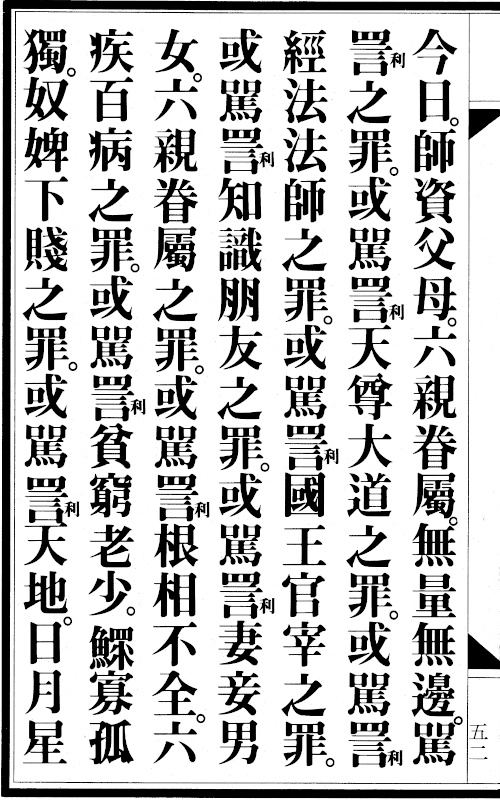 今日。師資父母。六親眷屬。無量無邊。罵
詈利之罪。或罵詈利天尊大道之罪。或罵詈利
經法法師之罪。或罵詈利國王官宰之罪。
或罵詈利知識朋友之罪。或罵詈利妻妾男
女。六親眷屬之罪。或罵詈利根相不全。六
疾百病之罪。或罵詈利貧窮老少。鰥寡孤
獨。奴婢下賤之罪。或罵詈利天地。日月星
五二